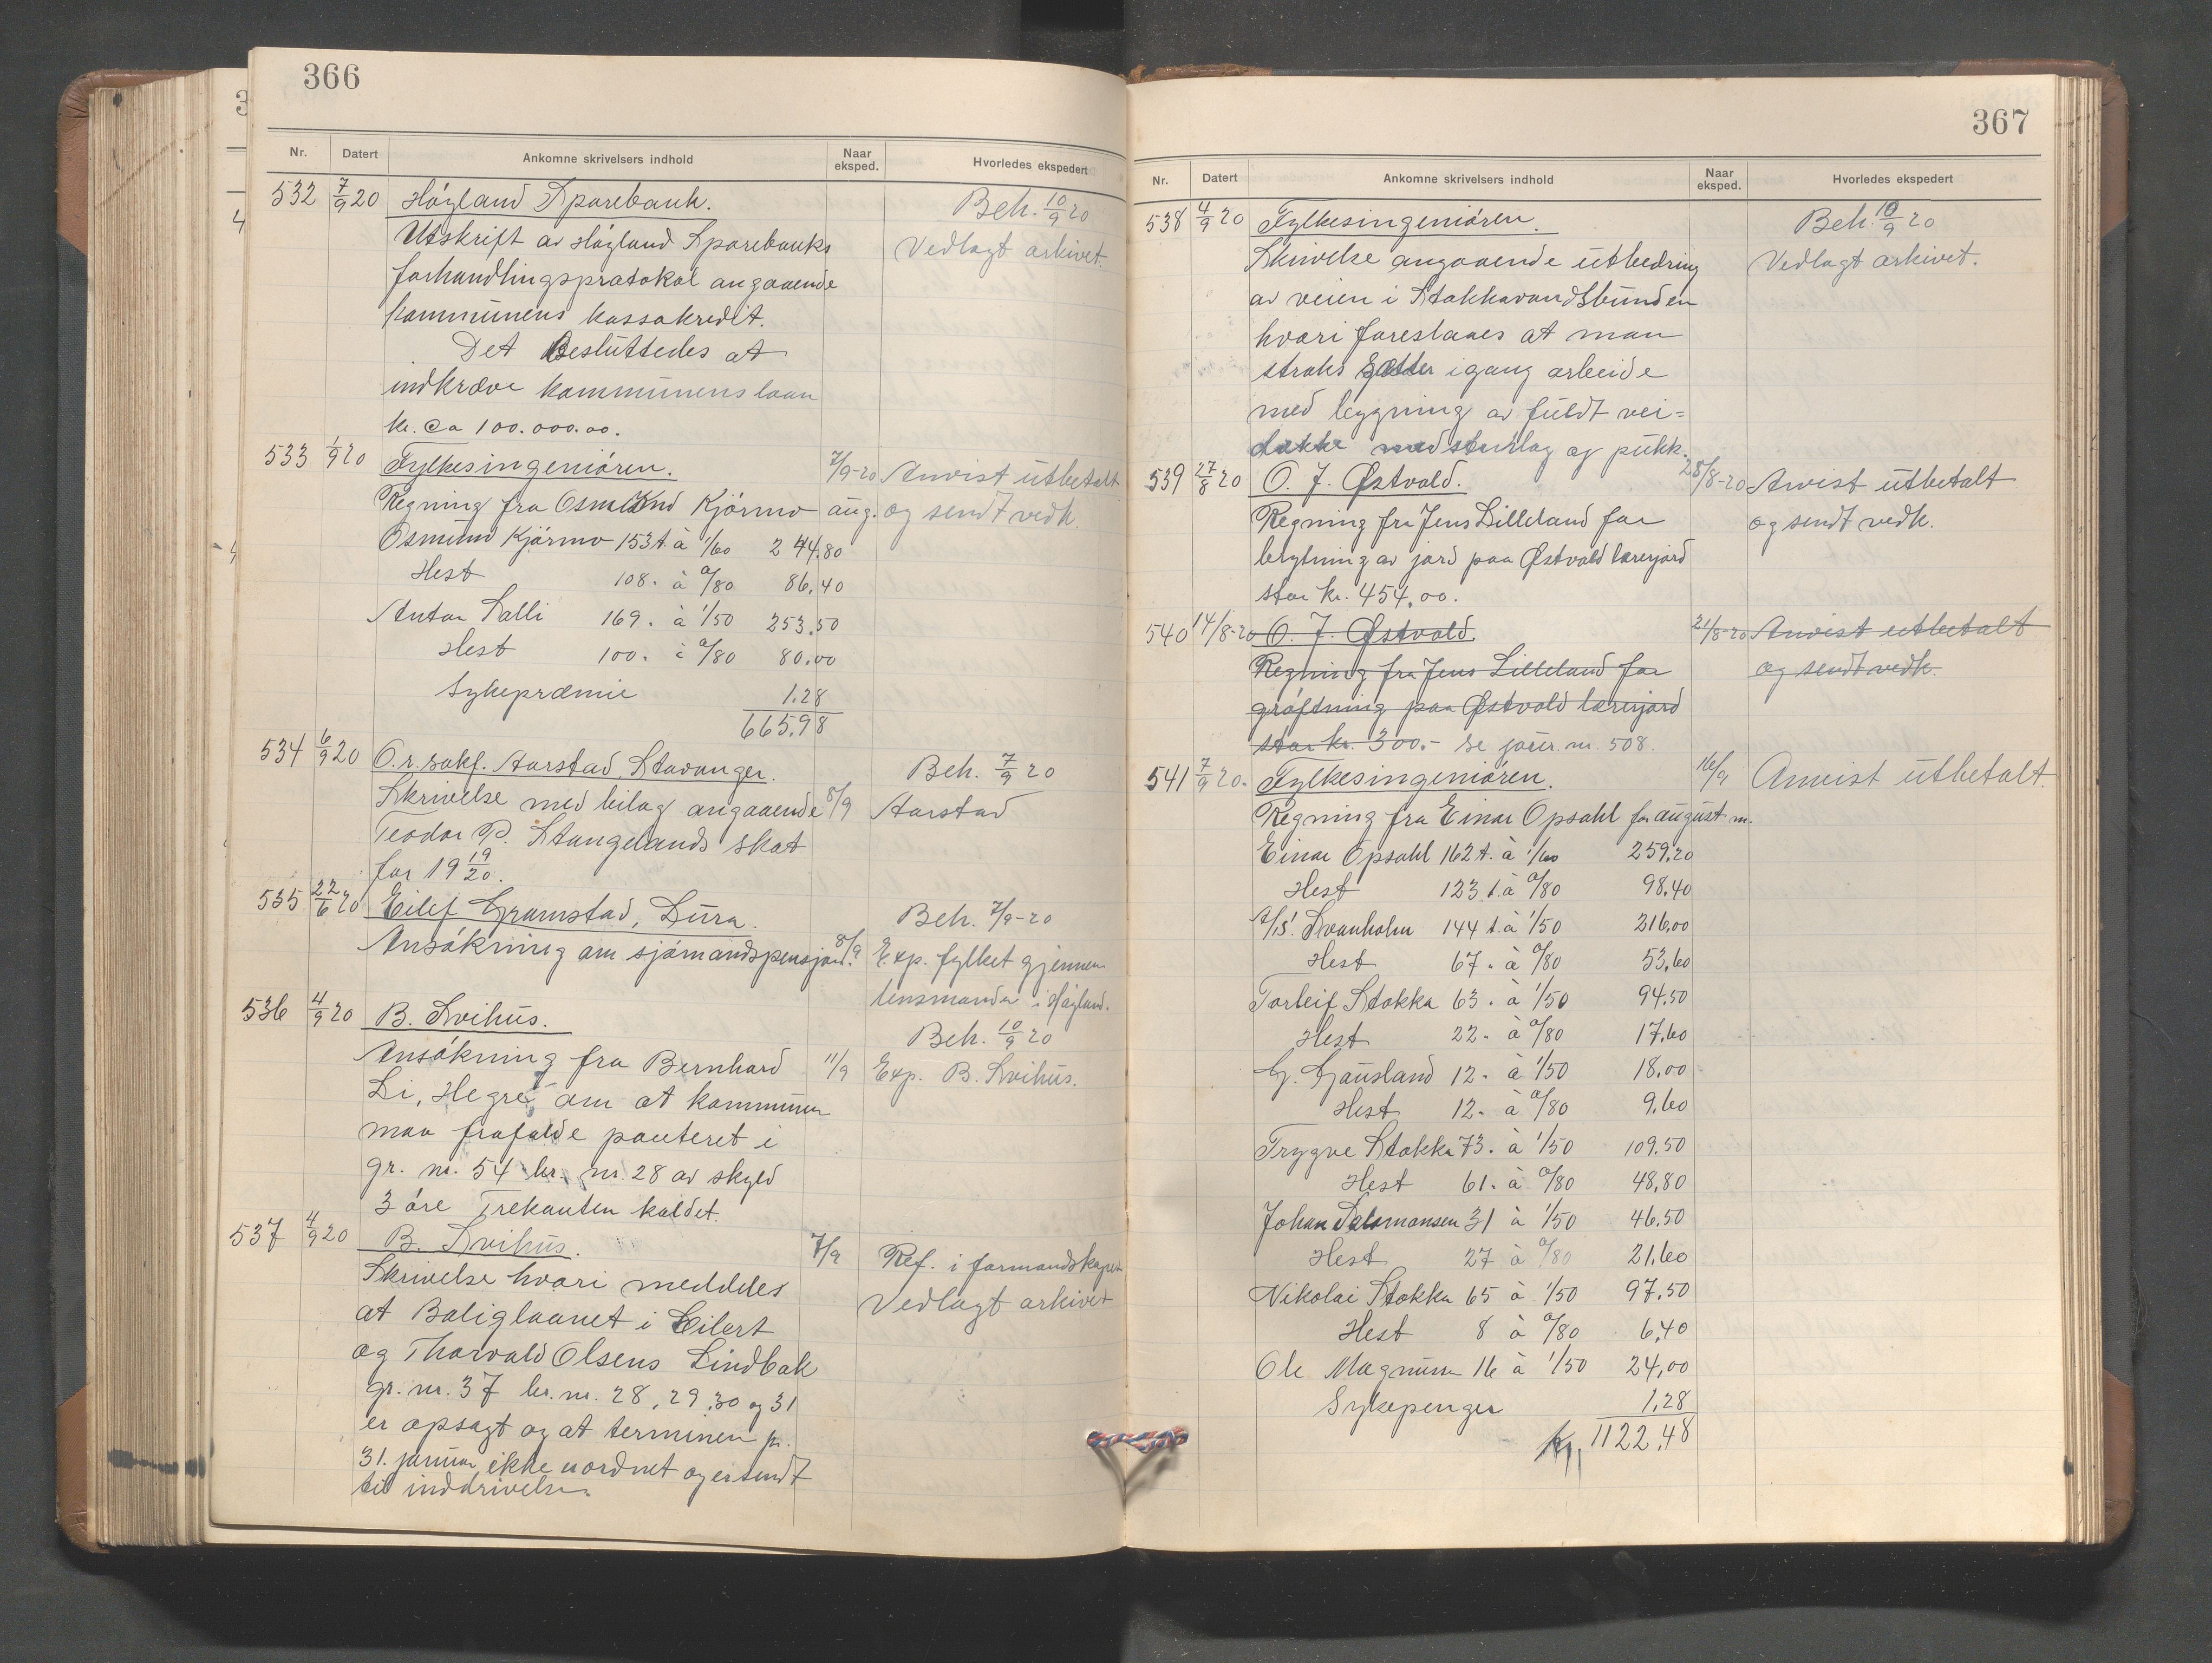 366
Nr. Datert Ankomne skrivelsers indhold Naar eksped. Hvorledes ekspedert
532 7/9 20 Høyland Sparebank. Beh. 10/9 20
Utskrift av Høyland Sparebanks Vedlagt arkivet.
forhandlingsprotokol angaaende
kommunens kassakredit.
Det besluttedes at
indkræve kommunens laan
kr. ca 100.000.00.
533 1/9 20 Fylkesingeniøren. 7/9-20 Anvist utbetalt
Regning fra Osmund Kjørmo aug. og sendt vedk.
Osmund Kjørmo 153 t. à 1/60 244,80
Hest 108. à 0/80 86,40
Anton Salli 169. à 1/50 253,50
Hest 100. à 0/80 80.00
Sykepræmie 1.28
665.98
534 6/9 20 O.r.sakf. Aarstad, Stavanger. Beh. 7/9 20
Skrivelse med bilag angaaende 8/9 Aarstad
Teodor P. Stangelands skat
for 19 19/20.
535 22/6 20 Eilef Gramstad, Lura. Beh. 7/9-20
Ansøkning om sjømandspensjon. 8/9 Exp. fylket gjennem
lensmanden i Høyland.
536 4/9 20 B. Svihus. Beh. 10/9 20
Ansøkning fra Bernhard 11/9 Exp. B. Svihus.
Li, Hegre, om at kommunen
maa frafalde panteret i
gr. nr. 54 br. nr. 28 av skyld
3 øre Trekanten kaldet.
537 4/9 20 B. Svihus. 7/9 Ref. i formandskapet
Skrivelse hvori meddeles Vedlagt arkivet
at Boliglaanet i Eilert
og Thorvald Olsens Lindbak
gr. nr. 37 br. nr. 28, 29, 30 og 31
er opsagt og at terminen pr.
31. januar ikke er ordnet og er sendt
til inddrivelse.
367
Nr. Datert Ankomne skrivelsers indhold Naar eksped. Hvorledes ekspedert
538 4/9 20 Fylkesingeniøren. Beh. 10/9 20
Skrivelse angaaende utbedring Vedlagt arkivet.
av veien i Stokkavandsbunden
hvori foreslaaes at man
straks sætter igang arbeide
med bygning av fuldt vei=
dække med sturlag og pukk.
539 27/8 20 O. J. Østvold. 28/8-20 Anvist utbetalt
Regning fra Jens Lilleland for og sendt vedk.
brytning av jord paa Østvold lærerjord
stor kr. 454,00.
540 14/8-20 O. J. Østvold. 21/8-20 Anvist utbetalt
Regning fra Jens Lilleland for og sendt vedk.
grøftning paa Østvold lærerjord
stor kr. 300.- se jour. nr. 508.
541 7/9 20. Fylkesingeniøren. 16/9 Anvist utbetalt.
Regning fra Einar Opsahl for august m.
Einar Opsahl 162 t. à 1/60 259,20
Hest 123 t. à 0/80 98,40
A/S. Svanholm 144 t. à 1/50 216,00
Hest 67. à 0/80 53,60
Torleif Stokka 63. à 1/50 94.50
Hest 22. à 0/80 17,60
G. Gausland 12. à 1/50 18.00
Hest 12. à 0/80 9,60
Trygve Stokka 73. à 1/50 109.50
Hest 61. à 0/80 48,80
Johan Salomonsen 31 à 1/50 46.50
Hest 27 à 0/80 21,60
Nikolai Stokka 65 à 1/50 97.50
Hest 8 à 0/80 6,40
Ole Magnussen 16 à 1/50 24,00
Sykepenger 1,28
kr. 1122,48